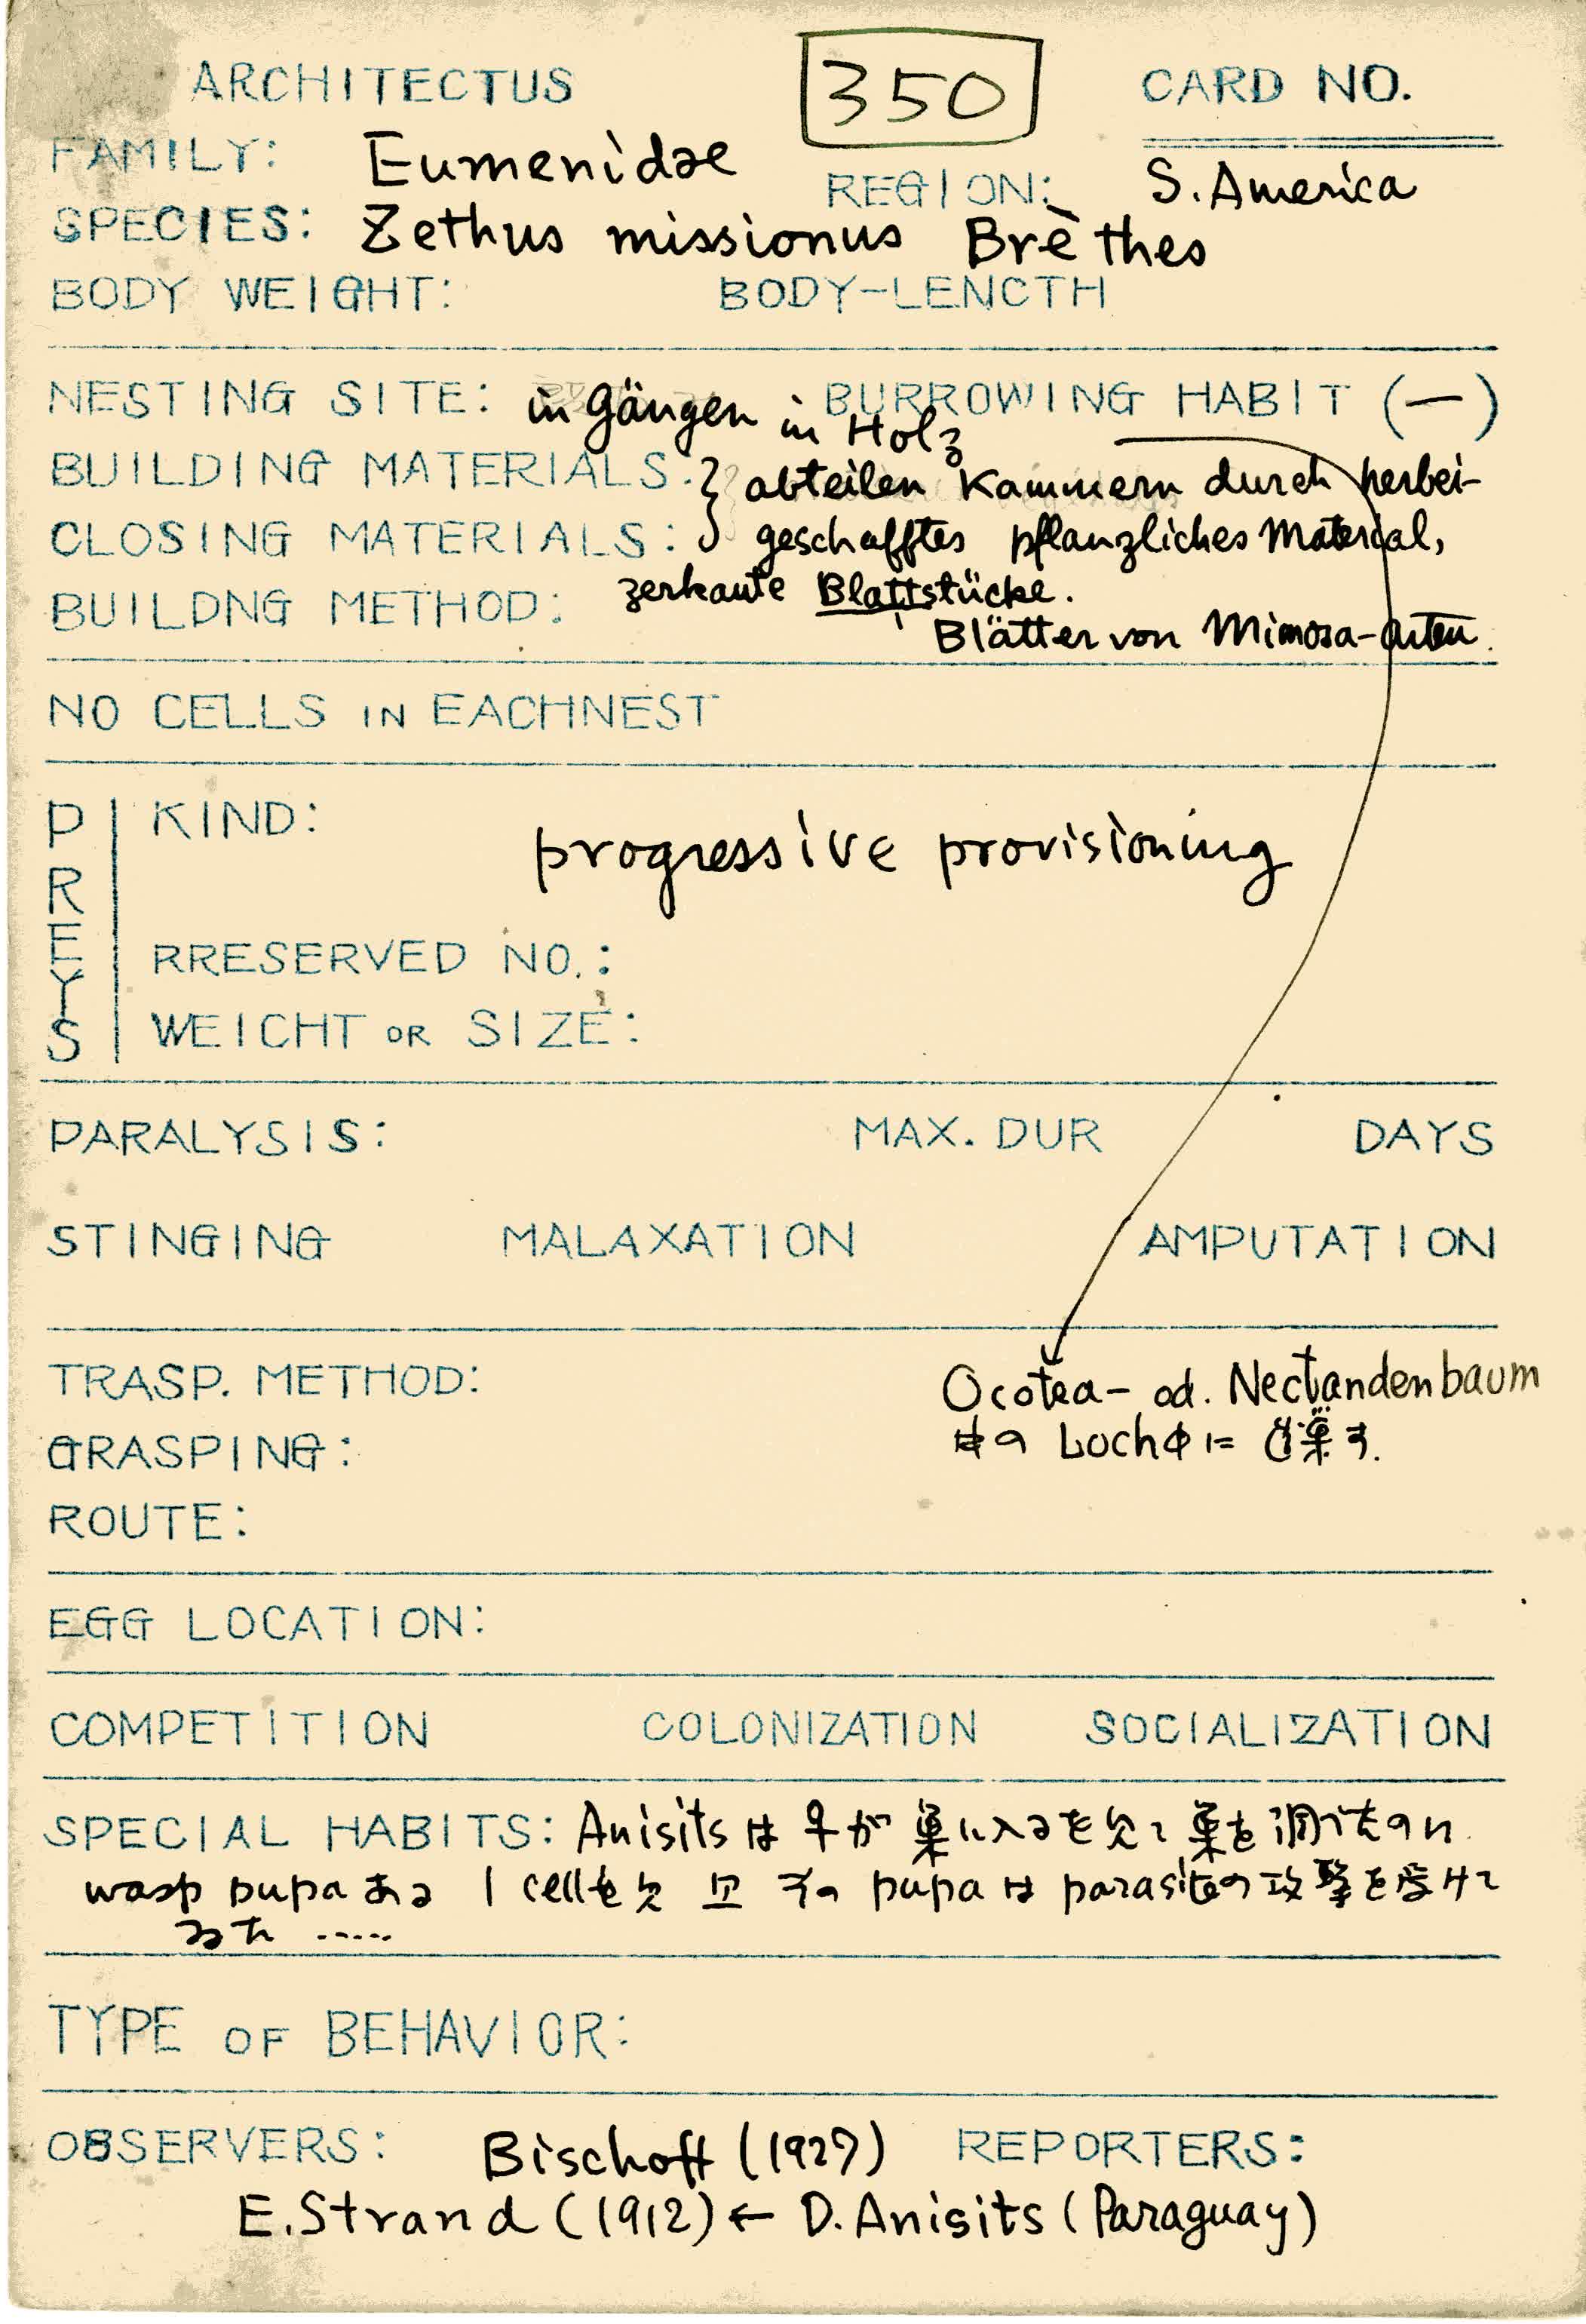 ARCHITECTUS 350 CARD NO.
FAMILY: Eumenidae REGION: S. America
SPECIES: Zethus missionus Brèthes
BODY WEIGHT: BODY-LENCTH
NESTING SITE: in Gängen in Holz BURROWING HABIT (—)
BUILDING MATERIALS: } abteilen Kammern durch herbei-
CLOSING MATERIALS: geschafftes pflanzliches Material,
BUILDNG METHOD: zerkaute Blattstücke.
Blätter von Mimosa-Arten.
NO CELLS IN EACHNEST
PREYS
KIND: progressive provisioning
RRESERVED NO.:
WEICHT OR SIZE:
PARALYSIS: MAX. DUR DAYS
STINGING MALAXATION AMPUTATION
TRASP. METHOD: Ocotea- od. Nectandenbaum
GRASPING: の Loch中に 巣す.
ROUTE:
EGG LOCATION:
COMPETITION COLONIZATION SOCIALIZATION
SPECIAL HABITS: Anisits は ♀が 巣に入るを見て 巣を調べたのに
wasp pupa ある 1 cellを見 且 その pupa は parasiteの攻撃を受けて
ゐた .....
TYPE OF BEHAVIOR:
OBSERVERS: Bischoff (1927) REPORTERS:
E. Strand (1912) ← D. Anisits (Paraguay)